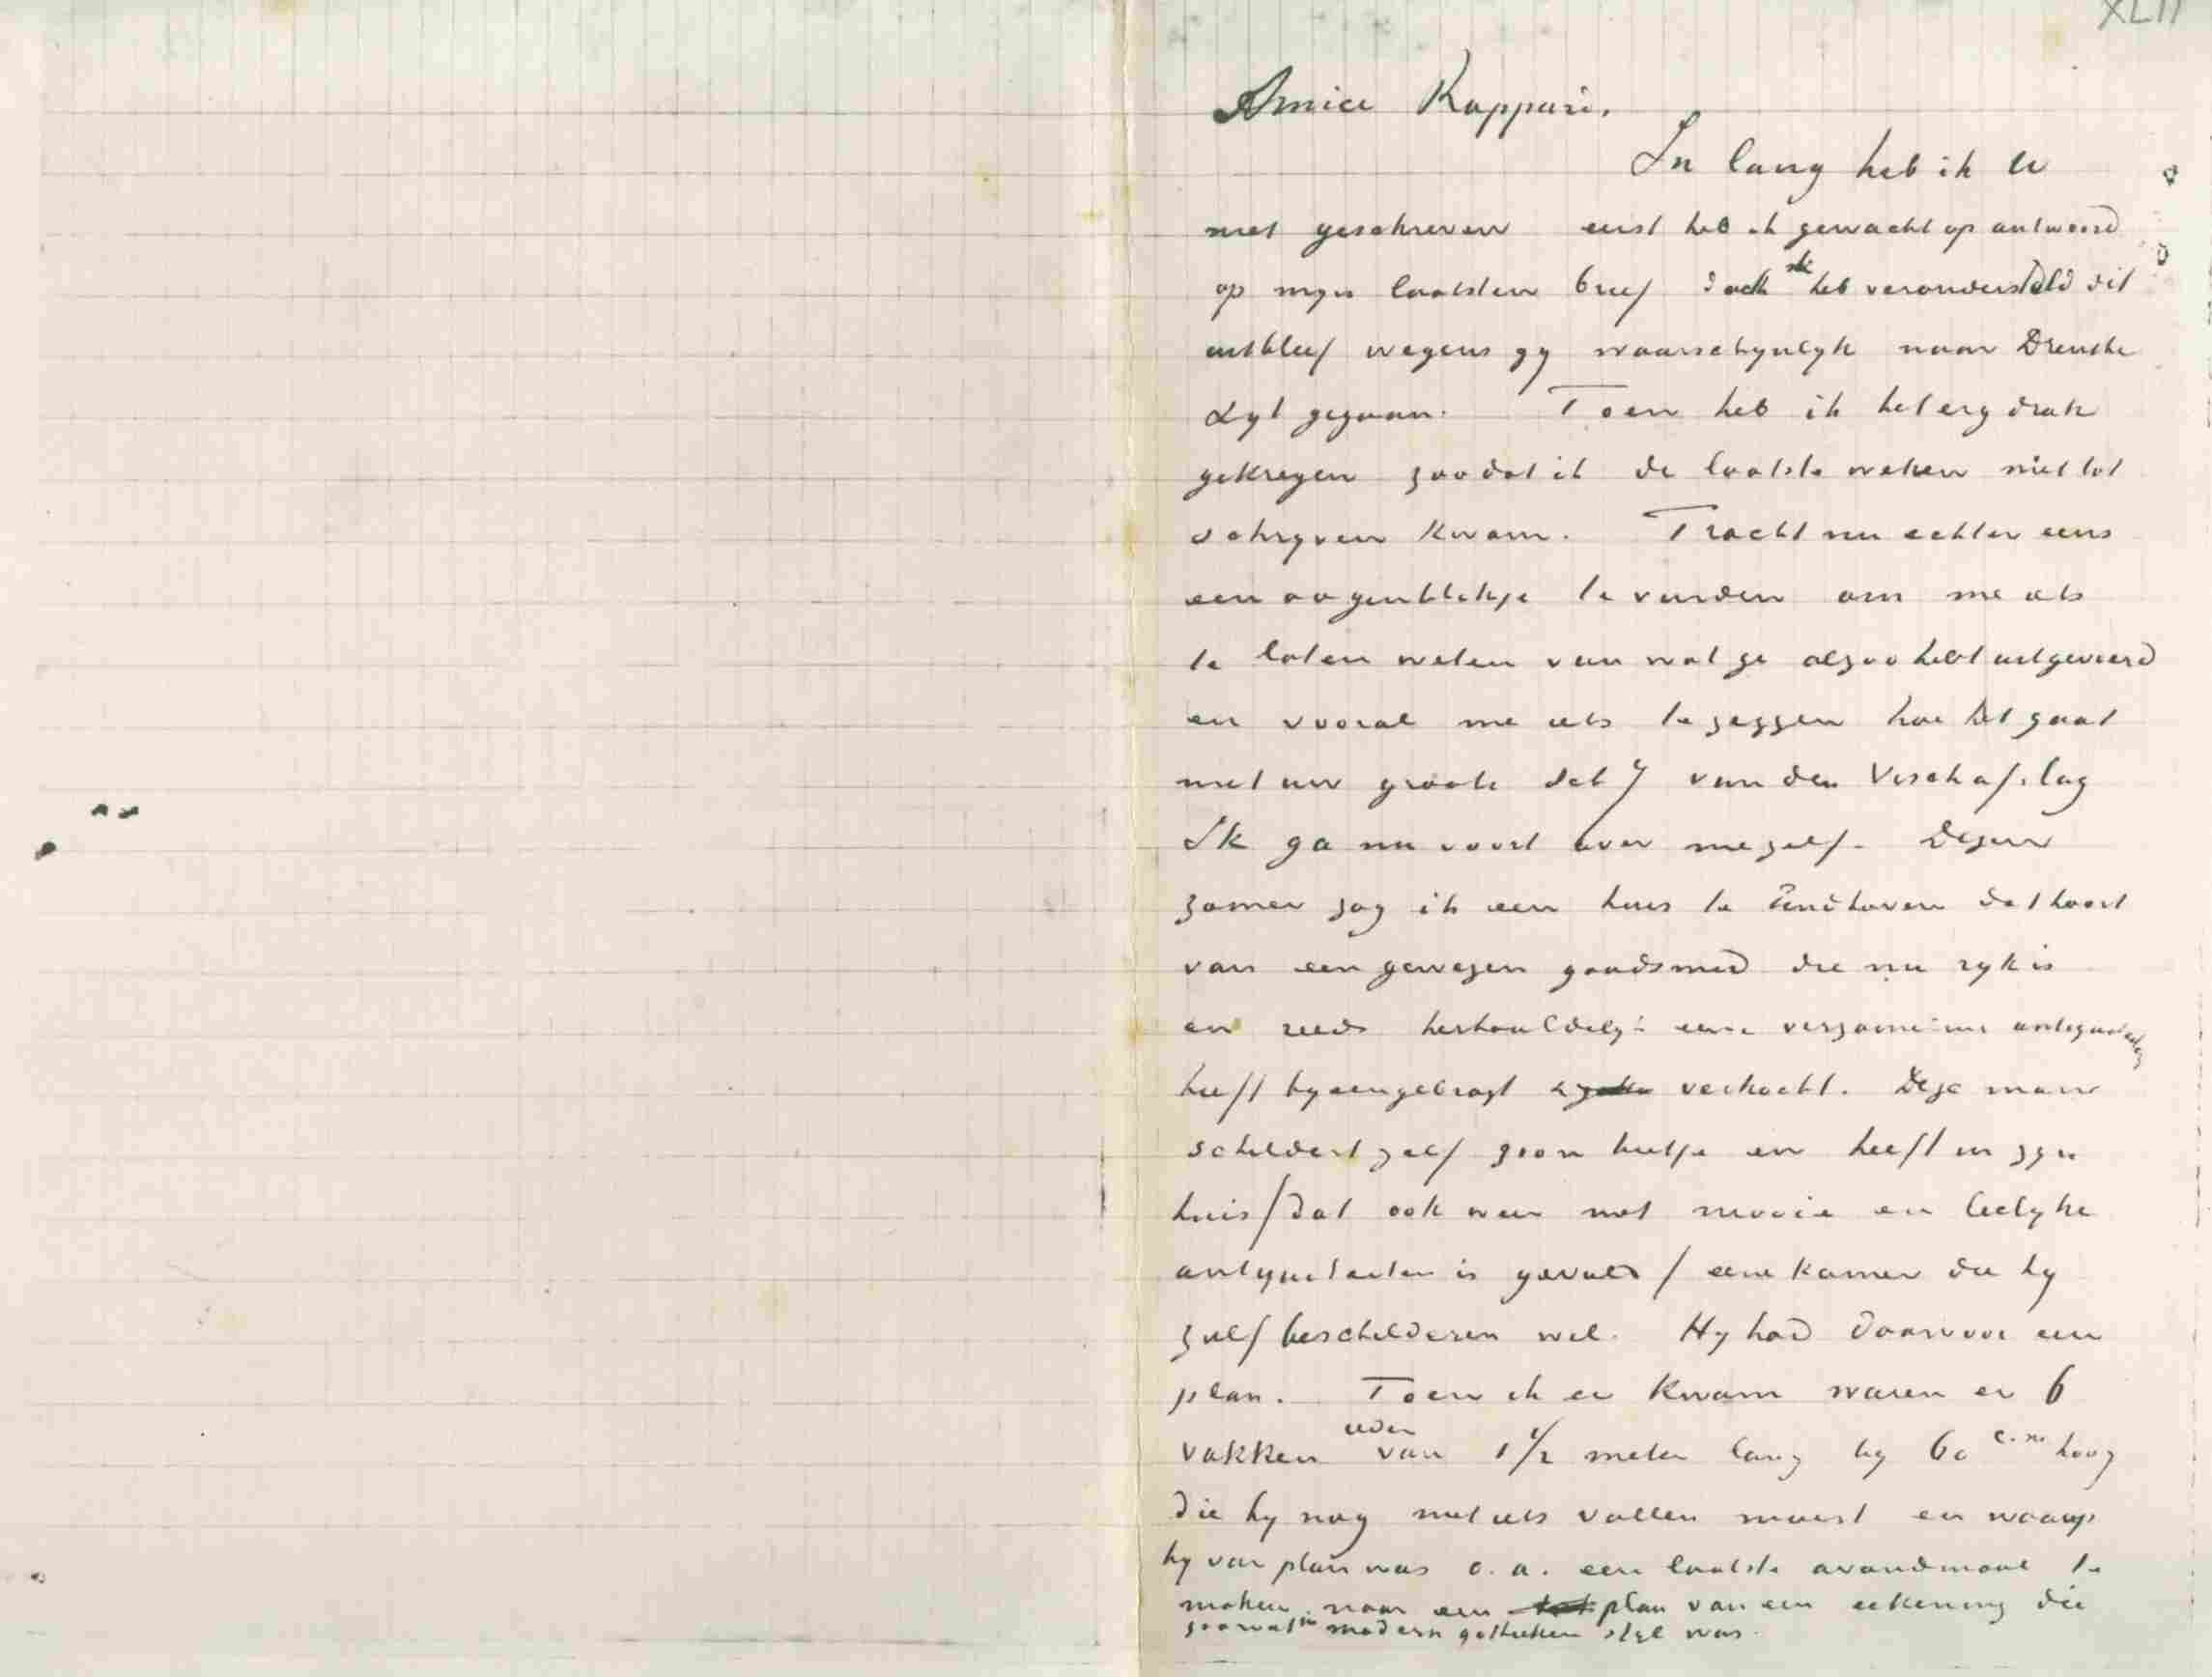 XLII
Amice Rappard,
In lang heb ik U
niet geschreven eerst heb ik gewacht op antwoord
op mijn laatsten brief doch ik heb verondersteld dit
uitbleef wegens gy waarschynlyk naar Drenthe
zyt gegaan. Toen heb ik het erg druk
gekregen zoodat ik de laatste weken niet tot
schryven kwam. Tracht nu echter eens
een oogenblikje te vinden om me iets
te laten weten van wat ge alzoo hebt uitgevoerd
en vooral me iets te zeggen hoe het gaat
met uw groote schy van den Vischafslag
Ik ga nu voort over mezelf. Dezen
zomer zag ik een huis te Eindhoven dat hoort
van een gewezen goudsmid die nu ryk is
en reeds herhaaldelyk eene verzameling antiquiteiten
heeft byeengebragt & verkocht. Deze man
schildert zelf zoon beetje en heeft in zyn
huis/dat ook weer met mooie en leelyke
antiquiteiten is gevuld/eene kamer die hy
zelf beschilderen wil. Hy had daarvoor een
plan. Toen ik er kwam waren er 6
vakken ieder van 1 1/2 meter lang by 60 c.m. hoog
die hy nog met iets vullen moest en waarop
hy van plan was o.a. een laatste avondmaal te
maken naar een plan van een teekening die
zoowat in modern gothieken styl was.